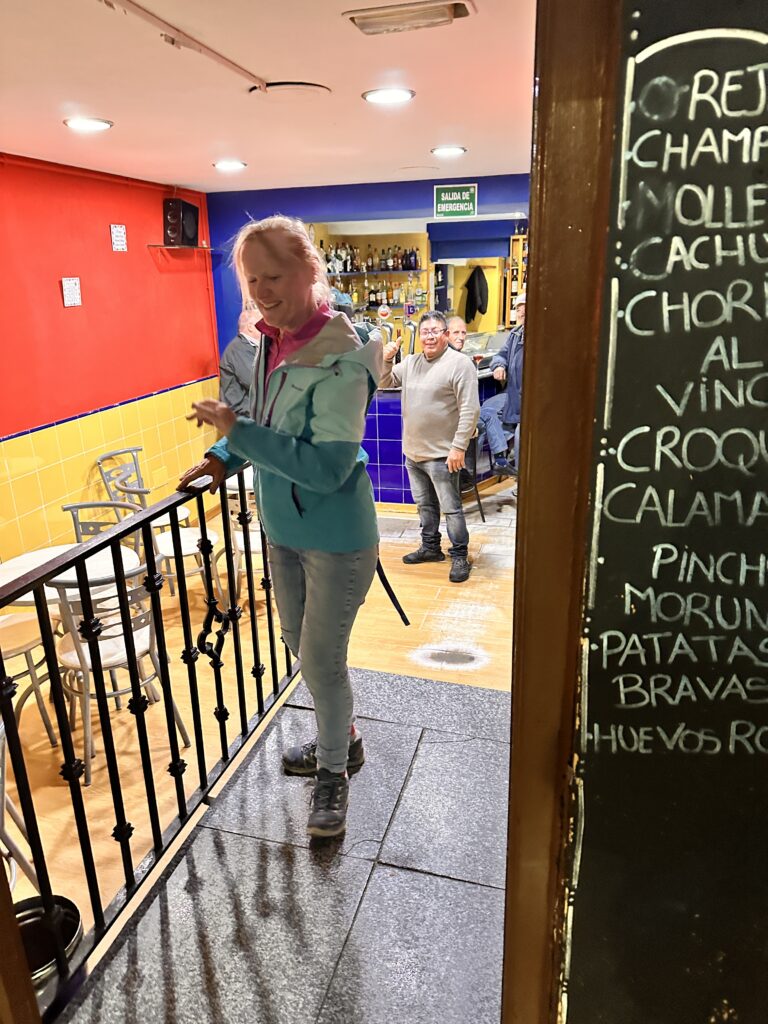 SALIDA DE
EMERGENCIA
OREJ
CHAMP
MOLLE
CACHU
CHORI
AL
VINC
CROQU
CALAMA
PINCH
MORUN
PATATAS
BRAVAS
HUEVOS RO